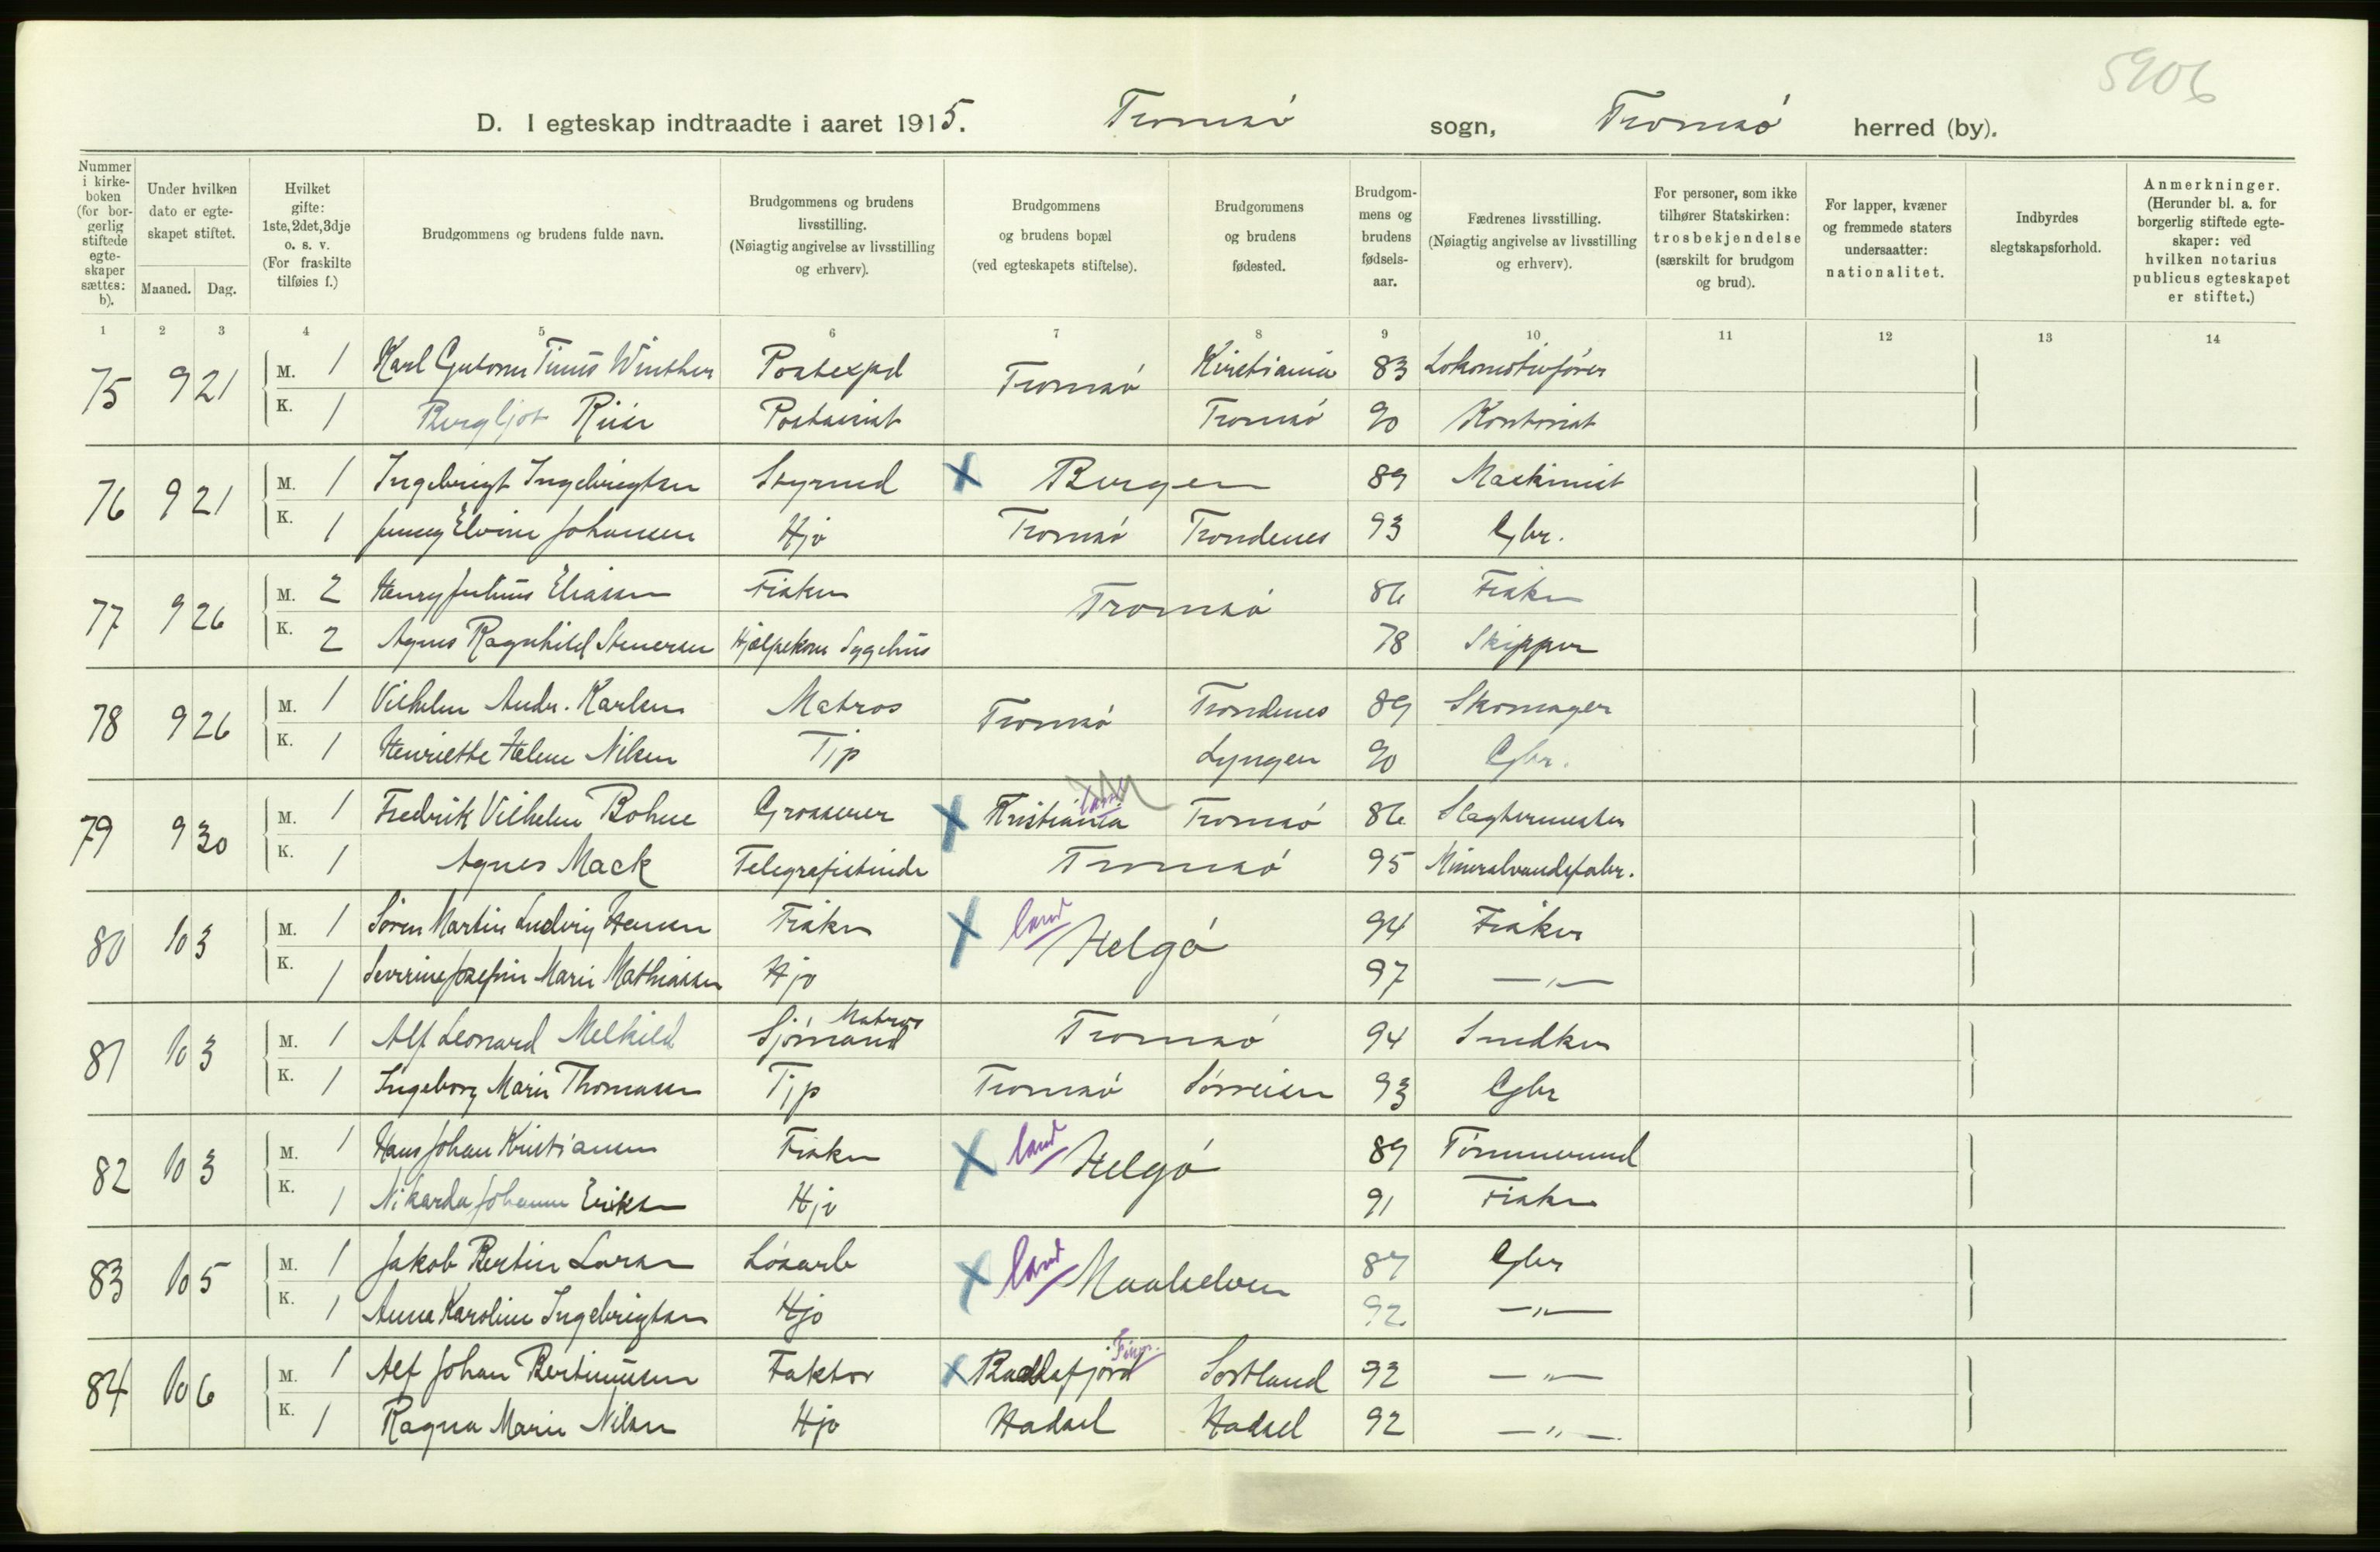 5906
D. I egteskap indtraadte i aaret 1915. Tromsø sogn, Tromsø herred (by).
Nummer i kirkeboken (for borgerlig stiftede egteskaper sættes: b).
Under hvilken dato er egteskapet stiftet.
Maaned. Dag.
Hvilket gifte: 1ste, 2det, 3dje o. s. v. (For fraskilte tilføies f.)
Brudgommens og brudens fulde navn.
Brudgommens og brudens livsstilling. (Nøiagtig angivelse av livsstilling og erhverv).
Brudgommens og brudens bopæl (ved egteskapets stiftelse).
Brudgommens og brudens fødested.
Brudgommens og brudens fødselsaar.
Fædrenes livsstilling. (Nøiagtig angivelse av livsstilling og erhverv).
For personer, som ikke tilhører Statskirken: trosbekjendelse (særskilt for brudgom og brud).
For lapper, kvæner og fremmede staters undersaatter: nationalitet.
Indbyrdes slegtskapsforhold.
Anmerkninger. (Herunder bl. a. for borgerlig stiftede egteskaper: ved hvilken notarius publicus egteskapet er stiftet.)
1 2 3 4 5 6 7 8 9 10 11 12 13 14
75 9 21 M. 1 Karl Gutorm Winther Postexpd Tromsø Kristiania 83 Lokomotivfører
K. 1 Bergljot Riise Tromsø 90 Kontorist
76 9 21 M. 1 Ingebrigt Ingebrigtsen Styrmd Bergen 89 Maskinist
K. 1 Jenny Elvine Johansen Hjo Tromsø Trondenes 93 Gbr.
77 9 26 M. 2 Henry Julius Eliassen Fisker Tromsø 86 Fisker
K. 2 Agnes Ragnhild Stenersen Hjælpekone Sygehus 78 Skipper
78 9 26 M. 1 Vilhelm Andr. Karlsen Matros Tromsø Trondenes 89 Skomager
K. 1 Henriette Helene Nilsen Tjp Lyngen 90 Gbr.
79 9 30 M. 1 Fredrik Vilhelm Bohne Grosserer Kristiania Tromsø 86 Slagtermester
K. 1 Agnes Mack Telegrafistinde Tromsø 95 Mineralvandsfabr.
80 10 3 M. 1 Søren Martin Ludvig Hansen Fisker land Helgø 94 Fisker
K. 1 Severine Josefine Marie Mathiassen Hjo 97 —"—
81 10 3 M. 1 Alf Leonard Melkild Sjømand Matros Tromsø 94 Snedker
K. 1 Ingeborg Marie Thomasen Tjp Tromsø Sørreisen 93 Gbr
82 10 3 M. 1 Hans Johan Kristiansen Fisker land Helgø 89 Tømmermand
K. 1 Nikarda Johanne Eriksen Hjo 91 Fisker
83 10 5 M. 1 Jakob Bertin Larsen Løsarb land Maalselven 87 Gbr
K. 1 Anna Karoline Ingebrigtsen Hjo 92 —"—
84 10 6 M. 1 Alf Johan Bertinussen Faktor Finm. Sortland 92 —"—
K. 1 Ragna Marie Nilsen Hjo Hadsel Hadsel 92 —"—